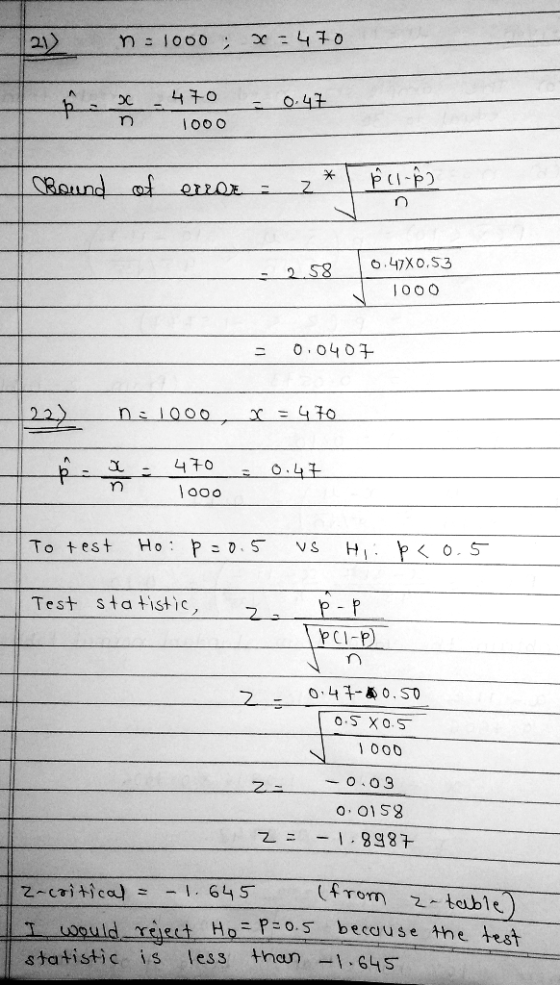 21) n = 1000 ; x = 470
p̂ = x/n = 470/1000 = 0.47
Bound of error = z* √(p̂(1-p̂)/n)
= 2.58 √(0.47×0.53/1000)
= 0.0407
22) n = 1000, x = 470
p̂ = x/n = 470/1000 = 0.47
To test Ho: p = 0.5 vs H₁: p < 0.5
Test statistic, z = (p̂ - p)/√(p(1-p)/n)
z = (0.47-0.50)/√(0.5×0.5/1000)
z = -0.03/0.0158
z = -1.8987
z-critical = -1.645 (from z-table)
I would reject Ho = p=0.5 because the test
statistic is less than -1.645